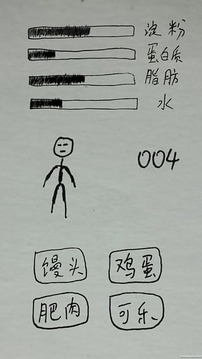 淀粉
蛋白质
脂肪
水
004
馒头 鸡蛋
肥肉 可乐